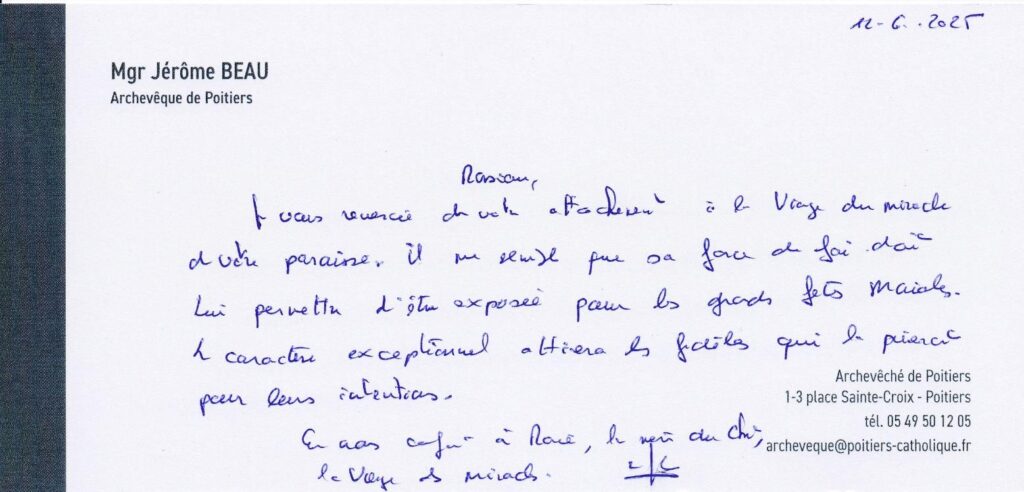 12-6.2025
Mgr Jérôme BEAU
Archevêque de Poitiers
Monsieur,
Je vous remercie de votre attachement à la Vierge du miracle
de votre paroisse. Il me semble que sa force de foi doit
lui permettre d'être exposée pour les grandes fêtes Mariales.
Le caractère exceptionnel attirera les fidèles qui la prieront
pour leurs intentions.
En vous confiant à Marie, la mère du Christ,
la Vierge des miracles.
Archevêché de Poitiers
1-3 place Sainte-Croix - Poitiers
tél. 05 49 50 12 05
archeveque@poitiers-catholique.fr